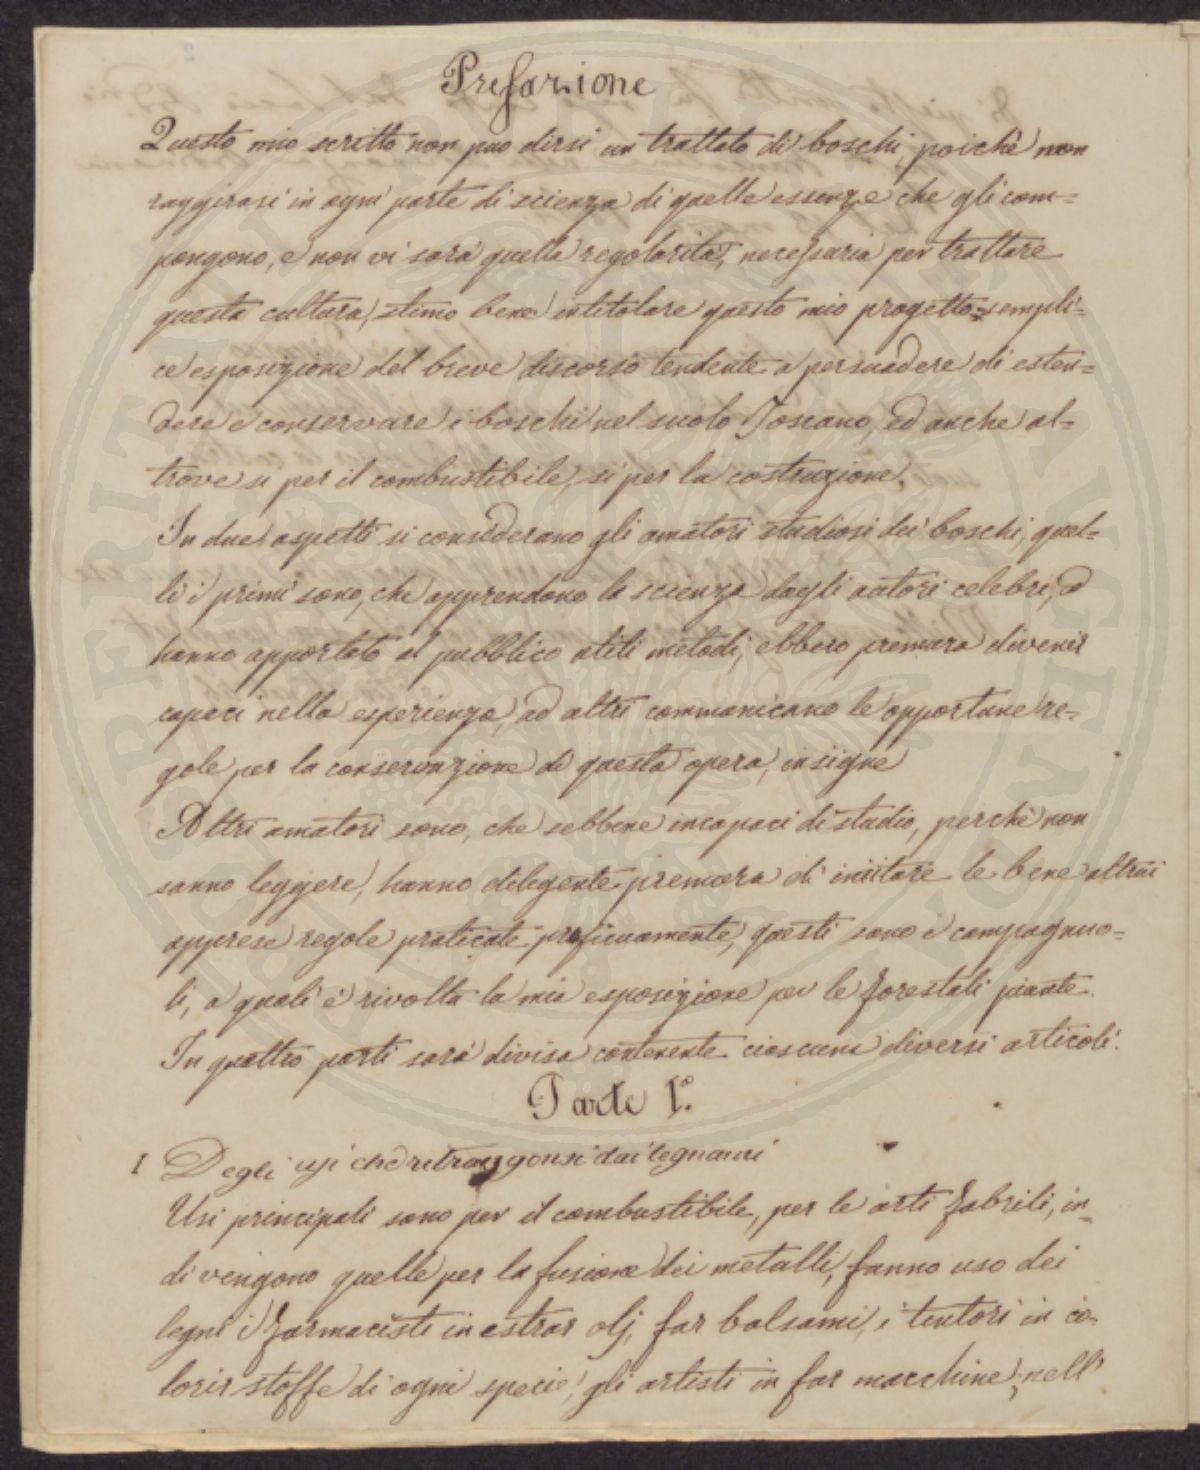 Prefazione
Questo mio scritto non puo dirsi un trattato di boschi, poichè non
raggirasi in ogni parte di scienza di quelle essenze che gli com=
pongono, e non vi sarà quella regolarità, necessaria per trattare
questa cultura, stimo bene intitolare questo mio progetto sempli=
ce esposizione del breve discorso tendente a persuadere di esten=
dere e conservare i boschi nel suolo Toscano, ed anche al=
trove si per il combustibile, si per la costruzione.
In due aspetti si considerano gli amatori studiosi dei boschi, quel=
li i primi sono, che apprendono la scienza dagli autori celebri, ed
hanno apportato al pubblico utili metodi, ebbero premura divenir
capaci nella esperienza, ad altri communicano le opportune re=
gole per la conservazione di questa opera, insigne
Altri amatori sono, che sebbene incapaci di studio, perchè non
sanno leggere, hanno diligente premura di imitare le bene altrui
apprese regole praticate proficuamente, questi sono i campagnuo=
li, a quali è rivolta la mia esposizione per le forestali piante.
In quattro parti sarà divisa contenente ciascuna diversi articoli.
Parte I.ª
I Degli usi che ritraggonsi dai legnami
Usi principali sono per il combustibile, per le arti fabrili, in=
di vengono quelle per la fusione dei metalli, fanno uso dei
legni i farmacisti in estrar olj, far balsami, i tentori in co=
lorir stoffe di ogni specie, gli artisti in far macchine, nell'